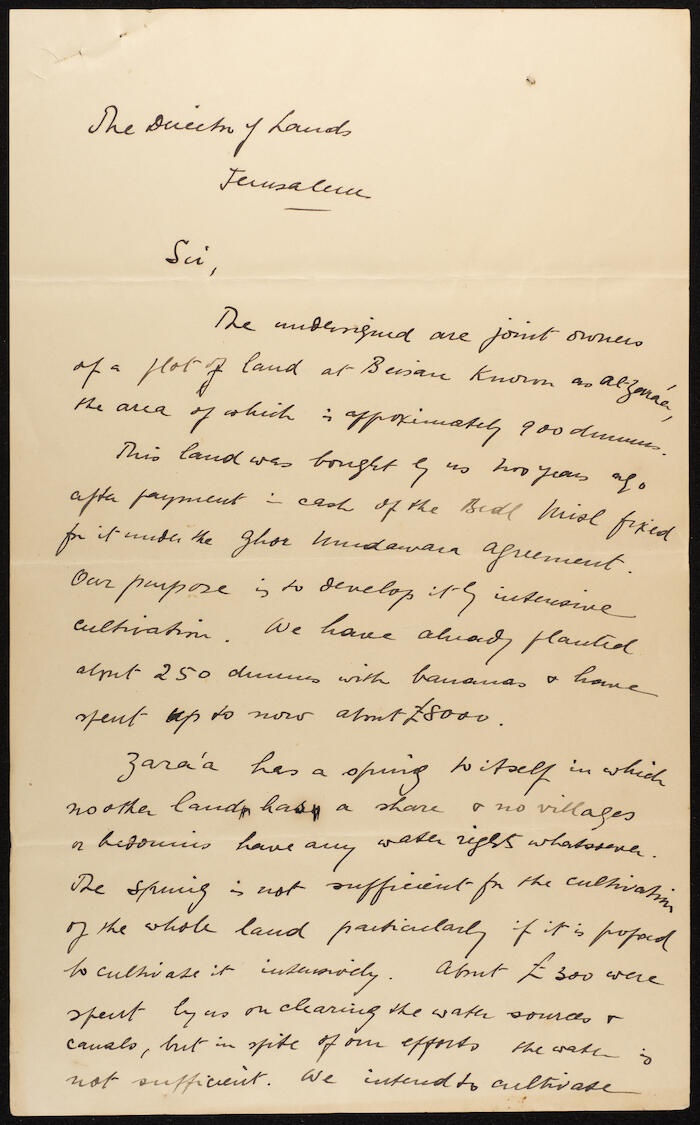 The Director of Lands
Jerusalem
Sir,
The undersigned are joint owners
of a plot of land at Beisan known as al-Zara'a,
the area of which is approximately 900 dunums.
This land was bought by us two years ago
after payment in cash of the Bedl Misl fixed
for it under the Ghor Mudawara Agreement.
Our purpose is to develop it by intensive
cultivation. We have already planted
about 250 dunums with bananas & have
spent up to now about £8000.
Zara'a has a spring to itself in which
no other land has a share & no villages
or bedouins have any water rights whatsoever.
The spring is not sufficient for the cultivation
of the whole land particularly if it is proposed
to cultivate it intensively. About £300 were
spent by us on clearing the water sources &
canals, but in spite of our efforts the water is
not sufficient. We intend to cultivate